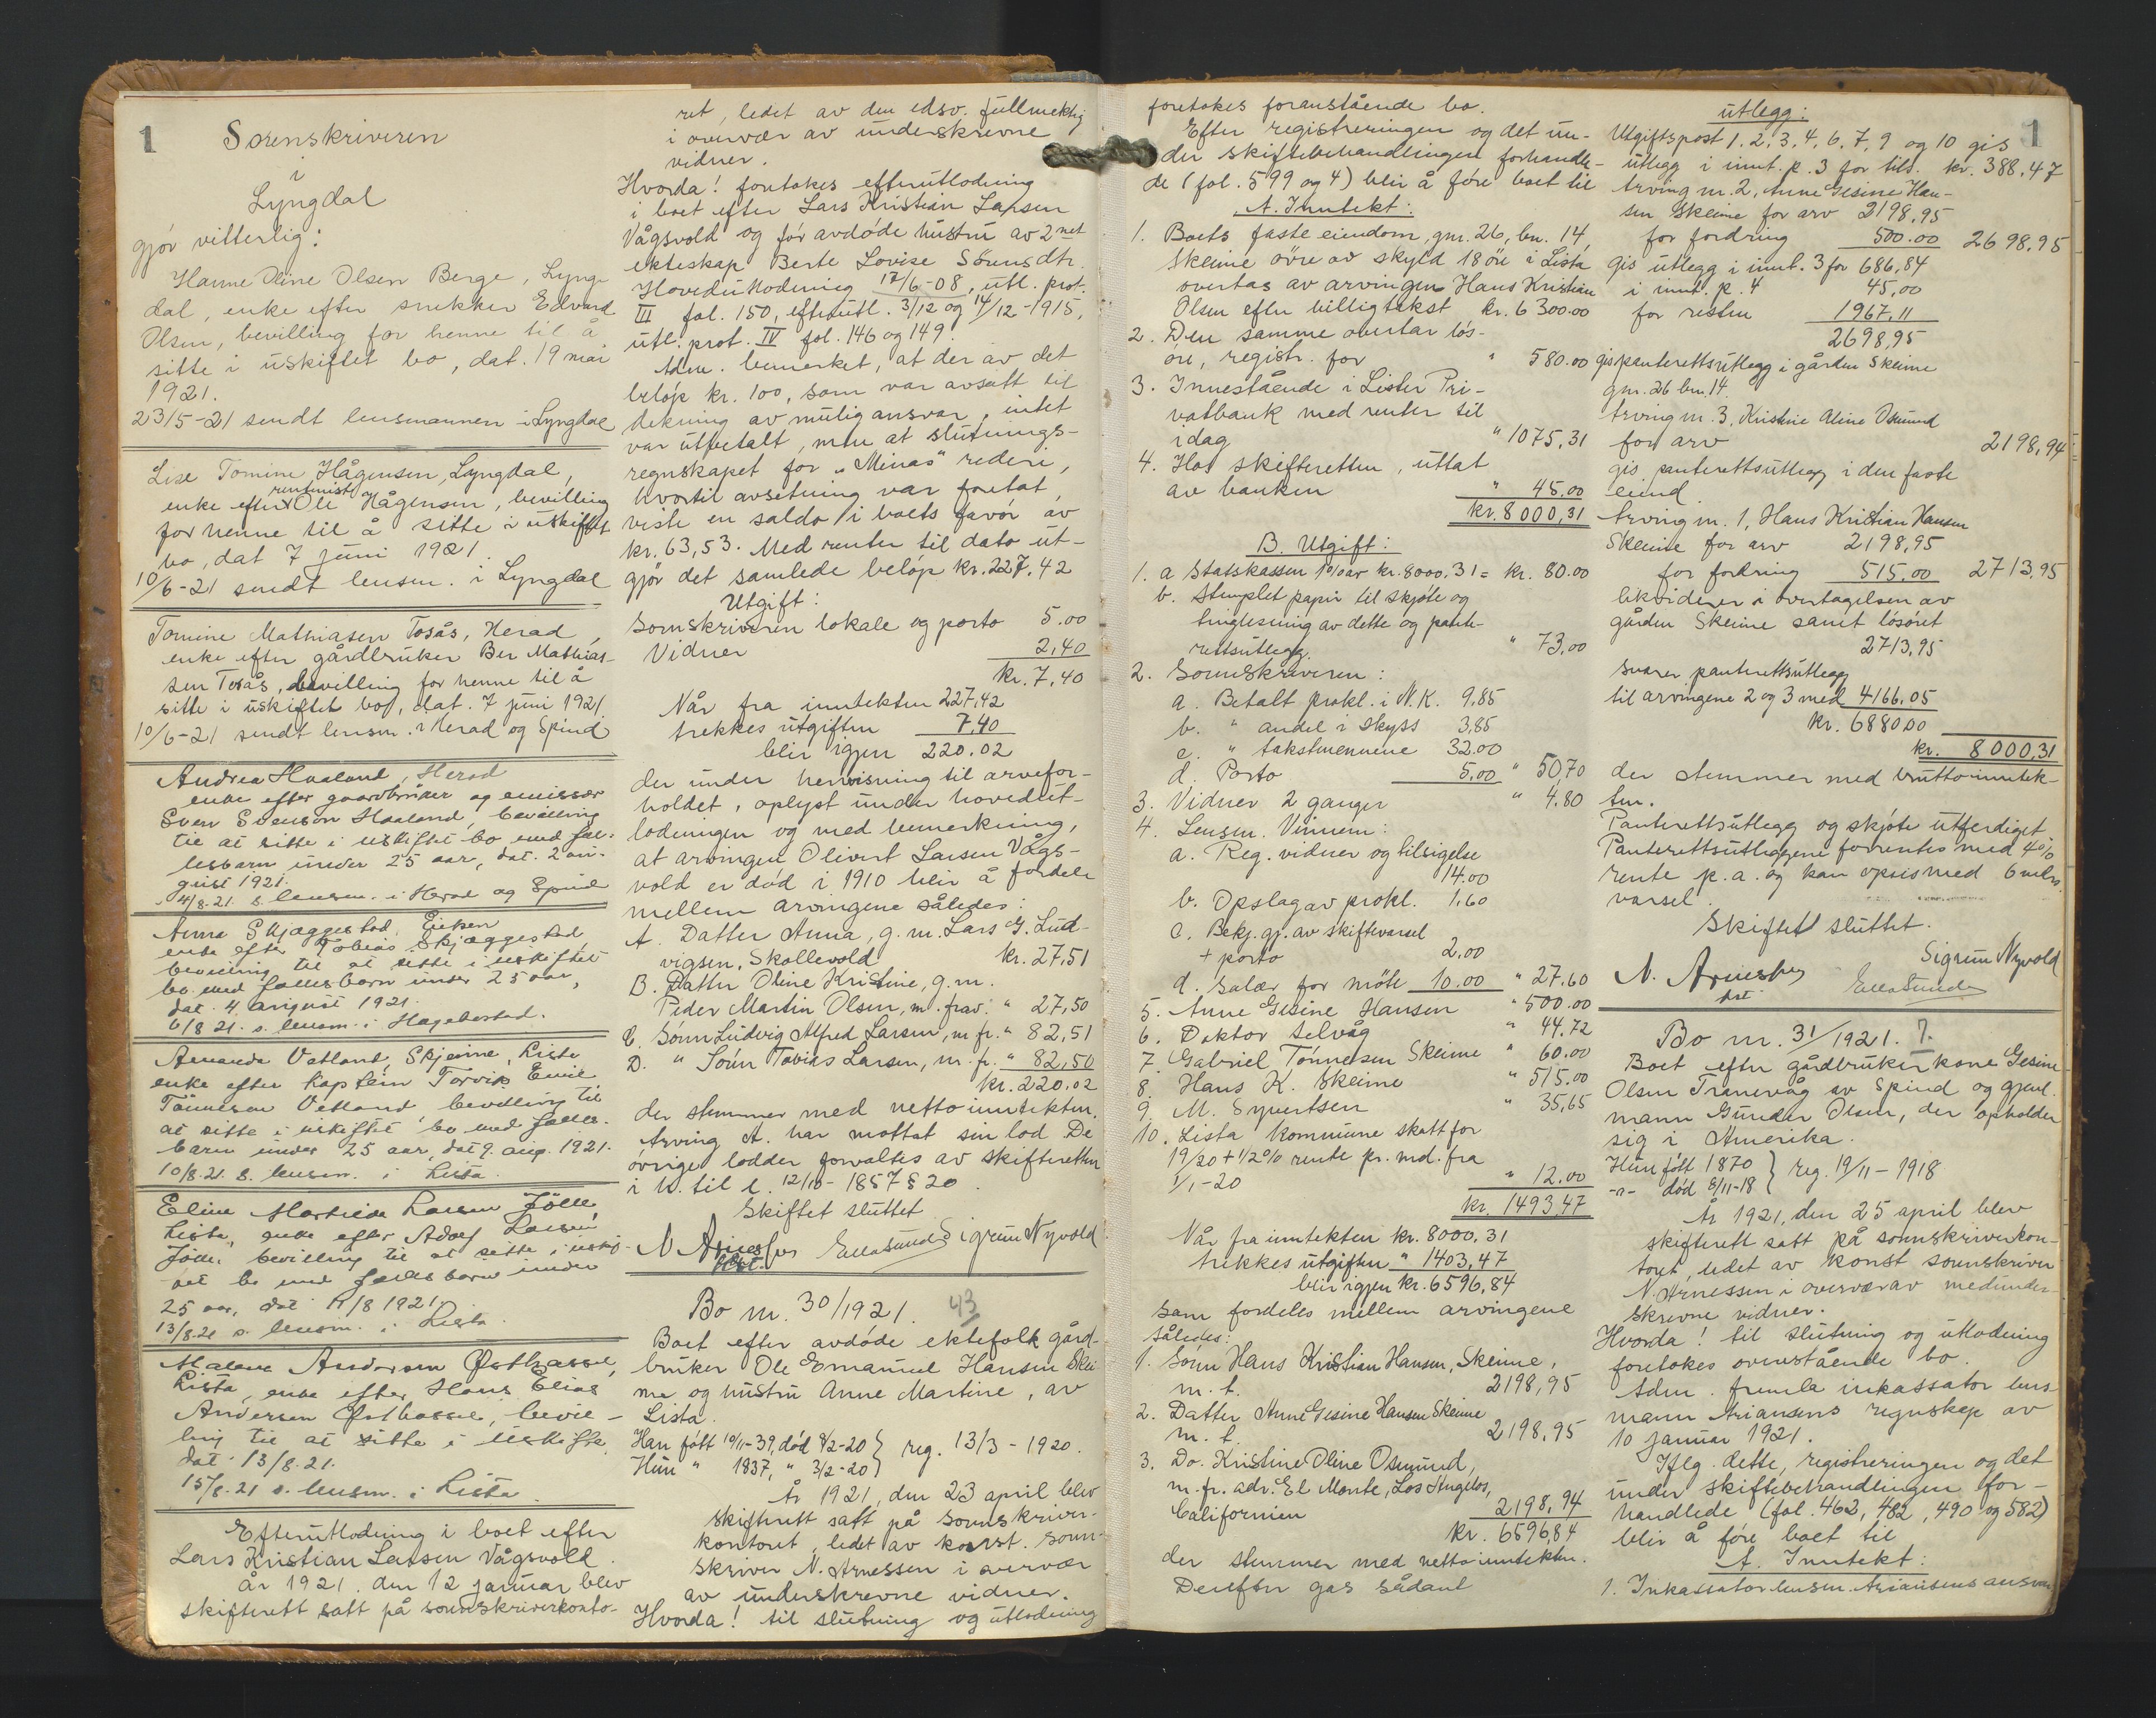 1
Sorenskriveren
i
Lyngdal
gjør vitterlig:
Hanne Oline Olsen Berge, Lyng-
dal, enke efter snekker Edvard
Olsen, bevilling for henne til å
sitte i uskiftet bo, dat. 19 mai
1921.
23/5-21 sendt lensmannen i Lyngdal
Lise Tomine Hågensen, Lyngdal,
rentenist
enke efter Ole Hågensen, bevilling
for henne til å sitte i uskiftet
bo, dat 7 juni 1921.
10/6-21 sendt lensm. i Lyngdal
Tomine Mathiasen Tosås, Herad,
enke efter gårdbruker Ber Mathias-
sen Tosås, bevilling for henne til å
sitte i uskiftet bo, dat. 7 juni 1921
10/6-21 sendt lensm. i Herad og Spind
Andrea Haaland, Herad
enke efter gaardbruker og emissær
Sven Svenson Haaland, bevilling
til at sitte i uskiftet bo med fæl-
lesbarn under 25 aar, dat. 2 au-
gust 1921.
4/8.21. s. lensm. i Herad og Spind
Anna Skjæggestad, Eiken
enke efter Tobias Skjæggestad
bevilling til at sitte i uskiftet
bo med fællesbarn under 25 aar,
dat. 4 august 1921.
6/8 21. s. lensm. i Hægebostad.
Amanda Vatland, Skjeime, Lista
enke efter kaptein Torvik Emil
Tønnesen Vetland, bevilling til
at sitte i uskiftet bo med fælles-
barn under 25 aar, dat 9. aug. 1921.
10/8.21. s. lensm. i Lista
Eline Martilde Larsen Jølle,
Lista, enke efter Adolf Larsen
Jølle, bevilling til at sitte i uskif-
tet bo med fællesbarn under
25 aar, dat. 11/8 1921
13/8.21 s. lensm. i Lista.
Malene Andersen Østhassel,
Lista, enke efter Hans Elias
Andersen Østhassel, bevil-
ling til at sitte i uskifte,
dat. 13/8.21.
15/8.21 s. lensm. i Lista.
Efterutlodning i boet efter
Lars Kristian Larsen Vågsvold.
År 1921. den 12 januar blev
skifterett satt på sorenskriverkonto-
ret, ledet av den edsv. fullmektig
i overvær av underskrevne
vidner.
Hvorda! foretokes efterutlodning
i boet efter Lars Kristian Larsen
Vågsvold og før avdøde hustru av 2net
ekteskap Berte Lovise Sørensdtr.
Hovedutlodning 17/6-08, utl. prot.
III fol. 150, efterutl. 3/12 og 14/12-1915,
utl. prot. IV fol. 146 og 149.
Adm. bemerket, at der av det
beløp kr. 100, som var avsatt til
dekning av mulig ansvar, intet
var utbetalt, men at slutnings-
regnskapet for "Minas" rederi,
hvortil avsetning var foretat,
viste en saldo i boets favør av
kr. 63,53. Med renter til dato ut-
gjør det samlede beløp kr. 227,42
Utgift:
Sorenskriveren lokale og porto 5.00
Vidner 2,40
kr. 7,40
Når fra inntekten 227,42
trekkes utgiften 7,40
blir igjen 220.02
der under henvisning til arvefor-
holdet, oplyst under hovedut-
lodningen og med bemerkning,
at arvingen Olivert Larsen Vågs-
vold er død i 1910 blir å fordele
mellem arvingene således:
A. Datter Anna, g. m. Lars G. Lud-
vigsen, Skollevold kr. 27,51
B. Datter Oline Kristine, g. m.
Peder Martin Olsen, m. frav. " 27,50
C. Sønn Ludvig Alfred Larsen, m fr. " 82,51
D. " Sørn Tobias Larsen, m. fr. " 82,50
kr. 220.02
der stemmer med nettoinntekten.
Arving A. har mottat sin lod De
øvrige lodder forvaltes av skifteretten
i h. til l. 12/10-1857 § 20.
Skiftet sluttet
N. Arnessen Ella Sunde Sigrun Nyvold
kst.
Bo nr. 30/1921. 43
Boet efter avdøde ektefolk gård-
bruker Ole Emanuel Hansen Skei-
me og hustru Anne Martine, av
Lista.
Han født 10/11-39, død 8/2-20 } reg. 13/3-1920.
Hun " 1837, " 3/2-20
År 1921, den 23 april blev
skifterett satt på sorenskriver-
kontoret, ledet av konst. soren-
skriver N. Arnessen i overvær
av underskrevne vidner.
Hvorda! til slutning og utlodning
foretokes foranstående bo.
Efter registreringen og det un-
der skiftebehandlingen forhandle-
de (fol. 599 og 4) blir å føre boet til
A. Inntekt:
1. Boets faste eiendom, gnr. 26, bn. 14,
Skeime øvre av skyld 18 øre i Lista
overtas av arvingen Hans Kristian
Olsen efter billigtakst kr. 6300.00
2. Den samme overtar løs-
øre, registr. for " 580.00
3. Innestående i Lister Pri-
vatbank med renter til
idag " 1075,31
4. Hos skifteretten, uttat
av banken " 45.00
kr. 8000,31
B. Utgift:
1. a Statskassen 1% av kr. 8000.31 = kr. 80.00
b. stemplet papir til skjøte og
tinglesning av dette og pante-
rettsutlegg. " 73,00
2. Sorenskriveren:
a. Betalt prokl. i N.K. 9,85
b. " andel i skyss 3,85
c. " takstmennene 32.00
d. Porto 5,00 " 50,70
3. Vidner 2 ganger " 4.80
4. Lensm. Vinnem:
a. Reg. vidner og tilsigelse
14.00
b. Opslag av prokl. 1.60
c. Bekj. gj. av skiftevarsel
+ porto 2.00
d. Salær for møte 10.00 " 27.60
5. Anne Gesine Hansen " 500.00
6. Doktor Selvåg " 44.72
7. Gabriel Tønnesen Skeime " 60.00
8. Hans K. Skeime " 515.00
9. M. Syvertsen " 35,65
10. Lista kommune skatt for
19/20 + 1/2% rente pr. md. fra
1/1-20 " 12.00
kr. 1493,47
Når fra inntekten kr. 8000.31
trekkes utgiften " 1403,47
blir igjen kr. 6596,84
som fordeles mellem arvingene
således:
1. Sønn Hans Kristian Hansen, Skeime,
m. t. 2198,95
2. Datter Anne Gesine Hansen Skeime
m. t. 2198,95
3. Do. Kristine Oline Osmund,
m. fr. adr. El Monte, Los Angelos,
Californien 2198,94
kr. 6596,84
der stemmer med nettoinntekten.
Derefter gas sådant
1
utlegg:
Utgiftspost 1. 2, 3, 4, 6, 7, 9 og 10 gis
utlegg i innt. p. 3 for tils. kr. 388,47
Arving nr. 2, Anne Gesine Han-
sen Skeime for arv 2198,95
for fordring 500.00 2698,95
gis utlegg i innt. 3 for 686,84
i innt. p. 4 45,00
for resten 1967,11
2698,95
gis panterettsutlegg i gården Skeime
gnr. 26 bn. 14.
Arving nr. 3, Kristine Aline Osmund
for arv 2198,94
gis panterettsutlegg i den faste
eiend.
Arving nr. 1, Hans Kristian Hansen
Skeime for arv 2198,95
for fordring 515,00 2713,95
likviderer i overtagelsen av
gården Skeime samt løsøret
2713,95
svarer panterettsutlegg
til arvingene 2 og 3 med 4166.05
kr. 6880.00
kr. 8000,31
der stemmer med bruttoinntek-
ten.
Panterettsutlegg og skjøte utferdiget.
Panterettsutleggene forrentes med 4%
rente p. a. og kan opsies med 6 mdrs.
varsel.
Skiftet sluttet.
N. Arnessen Sigrun Nyvold
kst. Ella Sunde
Bo nr. 31/1921. 7.
Boet efter gårdbrukerkone Gesine
Olsen Tranevåg av Spind og gjenl.
mann Gunder Olsen, der opholder
sig i Amerika.
Hun født 1870 } reg. 19/11-1918
-"- død 8/11-18
År 1921, den 25 april blev
skifterett satt på sorenskriverkon-
toret, ledet av konst sorenskriver
N. Arnessen i overvær av medunder-
skrevne vidner.
Hvorda! til slutning og utlodning
foretokes ovenstående bo.
Adm. fremla inkassator lens-
mann Ariansens regnskap av
10 januar 1921.
Iflg. dette, registreringen og det
under skiftebehandlingen for-
handlede (fol. 462, 482, 490 og 582)
blir å føre boet til
A. Inntekt:
1. Inkassator lensm. Ariansens ansvar